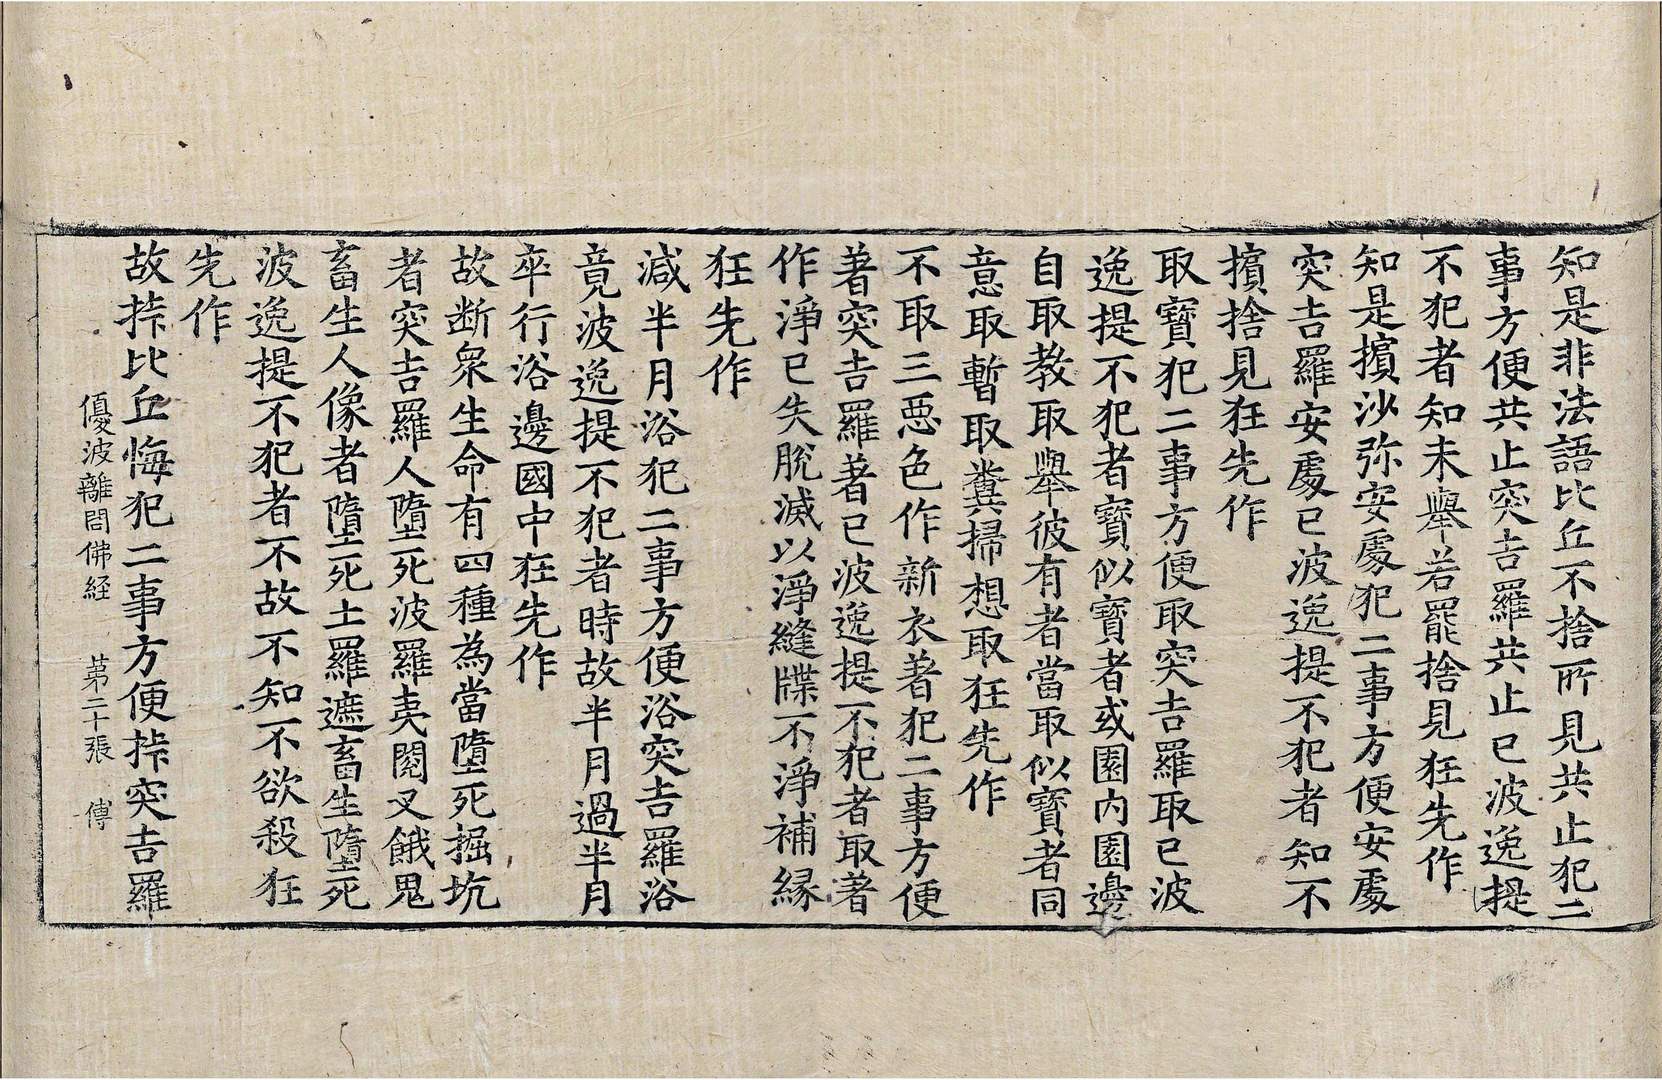 知是非法語比丘不捨所見共止犯二
事方便共止突吉羅共止已波逸提
不犯者知未舉若罷捨見狂先作
知是擯沙弥安處犯二事方便安處
突吉羅安處已波逸提不犯者知不
擯捨見狂先作
取寶犯二事方便取突吉羅取已波
逸提不犯者寶似寶者或園内園邊
自取教取舉彼有者當取似寶者同
意取暫取糞掃想取狂先作
不取三惡色作新衣著犯二事方便
著突吉羅著已波逸提不犯者取著
作淨已失脫滅以淨縫牒不淨補緣
狂先作
減半月浴犯二事方便浴突吉羅浴
竟波逸提不犯者時故半月過半月
卒行浴邊國中狂先作
故断衆生命有四種為當墮死掘坑
者突吉羅人墮死波羅夷閱叉餓鬼
畜生人像者墮死土羅遮畜生墮死
波逸提不犯者不故不知不欲殺狂
先作
故㧻比丘悔犯二事方便㧻突吉羅
優波離問佛経 第二十張 傅